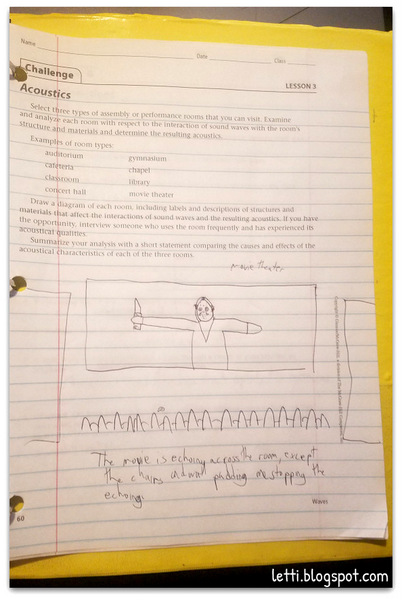 Name
Date
Class
Challenge
LESSON 3
Acoustics
Select three types of assembly or performance rooms that you can visit. Examine
and analyze each room with respect to the interaction of sound waves with the room's
structure and materials and determine the resulting acoustics.
Examples of room types:
auditorium gymnasium
cafeteria chapel
classroom library
concert hall movie theater
Draw a diagram of each room, including labels and descriptions of structures and
materials that affect the interactions of sound waves and the resulting acoustics. If you have
the opportunity, interview someone who uses the room frequently and has experienced its
acoustical qualities.
Summarize your analysis with a short statement comparing the causes and effects of the
acoustical characteristics of each of the three rooms.
movie theater
The movie is echoing across the room, except
the chairs and wall padding are stopping the
echoing.
60
Waves
letti.blogspot.com